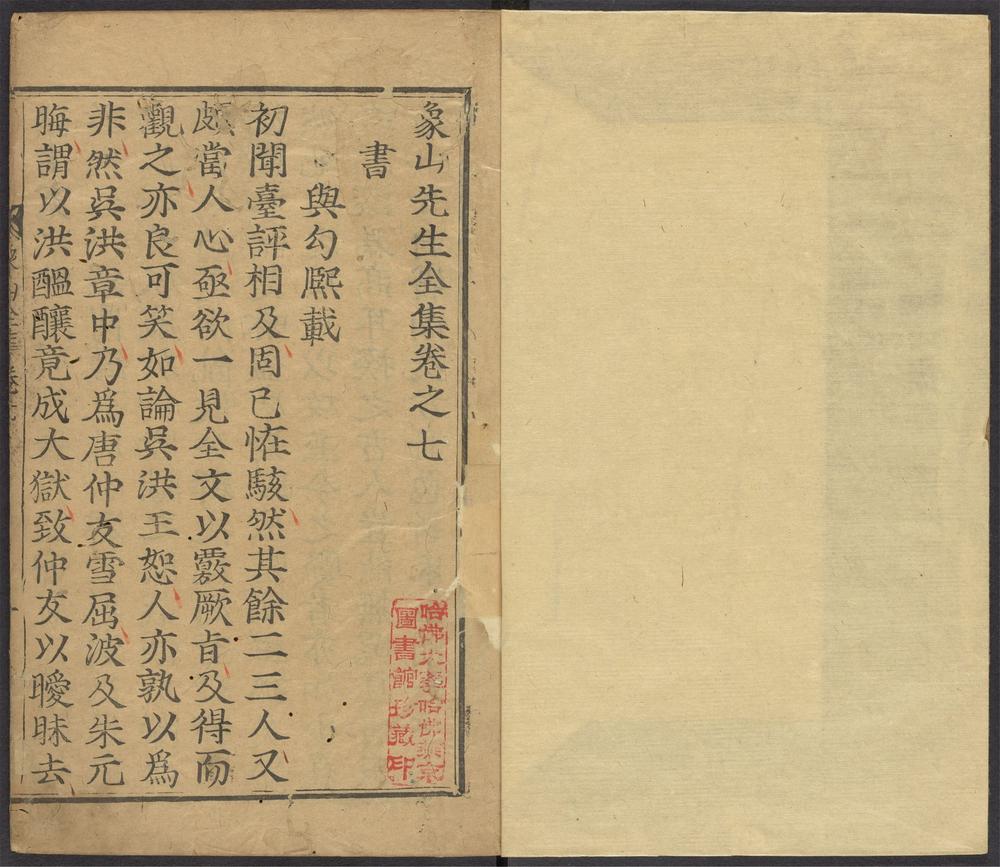 象山先生全集卷之七
書
與勾熈載
初聞臺評相及固已恠駭然其餘二三人又
頗當人心亟欲一見全文以覈厥旨及得而
觀之亦良可笑如論吳洪王恕人亦孰以爲
非然吳洪章中乃爲唐仲友雪屈波及朱元
晦謂以洪醞釀竟成大獄致仲友以曖昧去
哈佛大學哈佛燕京
圖書館珍藏印